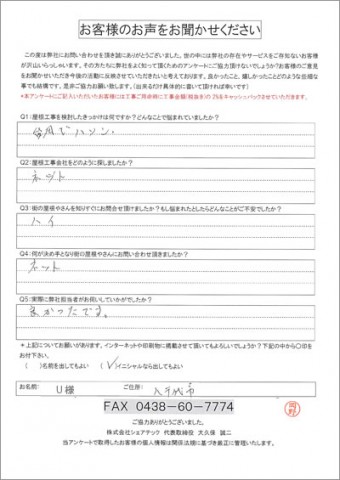 お客様のお声をお聞かせください
この度は弊社にお問い合わせを頂き誠にありがとうございました。世の中には弊社の存在やサービスをご存知ないお客様
が沢山いらっしゃいます。その方たちに弊社をよく知って頂くためのアンケートにご協力頂けないでしょうか?お客様のご意見
をお聞かせいただき今後の活動に反映させていただきたいと考えております。良かったこと、嬉しかったことどのような些細な
事でも結構です。是非ご協力お願い致します。(出来るだけ具体的に書いて頂ければ幸いです)
*本アンケートにご記入いただいたお客様には工事ご用命時にて工事金額(税抜き)の 2%をキャッシュバックさせていただきます。
Q1:屋根工事を検討したきっかけは何ですか?どんなことで悩まれていましたか?
台風でハソン。
Q2:屋根工事会社をどのように探しましたか?
ネット
Q3:街の屋根やさんを知りすぐにお問合せ頂けましたか?もし悩まれたとしたらどんなことがご不安でしたか?
ハイ
Q4:何が決め手となり街の屋根やさんにお問い合わせ頂きましたか?
ネット
Q5:実際に弊社担当者がお伺いしていかがでしたか?
良かったです。
*上記についてお願いがあります。インターネットや印刷物に掲載させて頂いてもよろしいでしょうか?下記の中から〇印を
お付け下さい。
( )名前を出してもよい (✓)イニシャルなら出してもよい
お名前: U様 ご住所: 八千代市
FAX 0438-60-7774
ご協力ありがとうございました。
株式会社シェアテック 代表取締役 大久保 誠二
当アンケートで取得したお客様の個人情報は関係法規に基づき厳正に管理いたします。